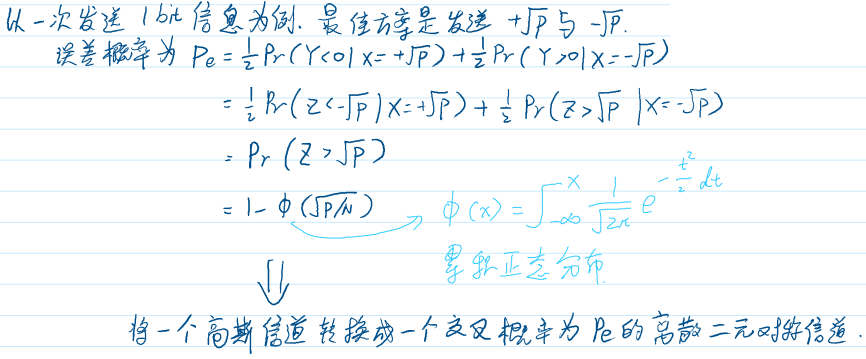 以一次发送 1 bit 信息为例. 最佳方案是发送 +√P 与 -√P.
误差概率为 Pe = 1/2 Pr(Y<0|X=+√P) + 1/2 Pr(Y>0|X=-√P)
= 1/2 Pr(Z<-√P|X=+√P) + 1/2 Pr(Z>√P |X=-√P)
= Pr(Z>√P)
= 1-Φ(√P/N) → Φ(x) = ∫_{-∞}^{x} 1/√2π e^{-t²/2} dt
累积正态分布
⇓
将一个高斯信道转换成一个交叉概率为 Pe 的离散二元对称信道.